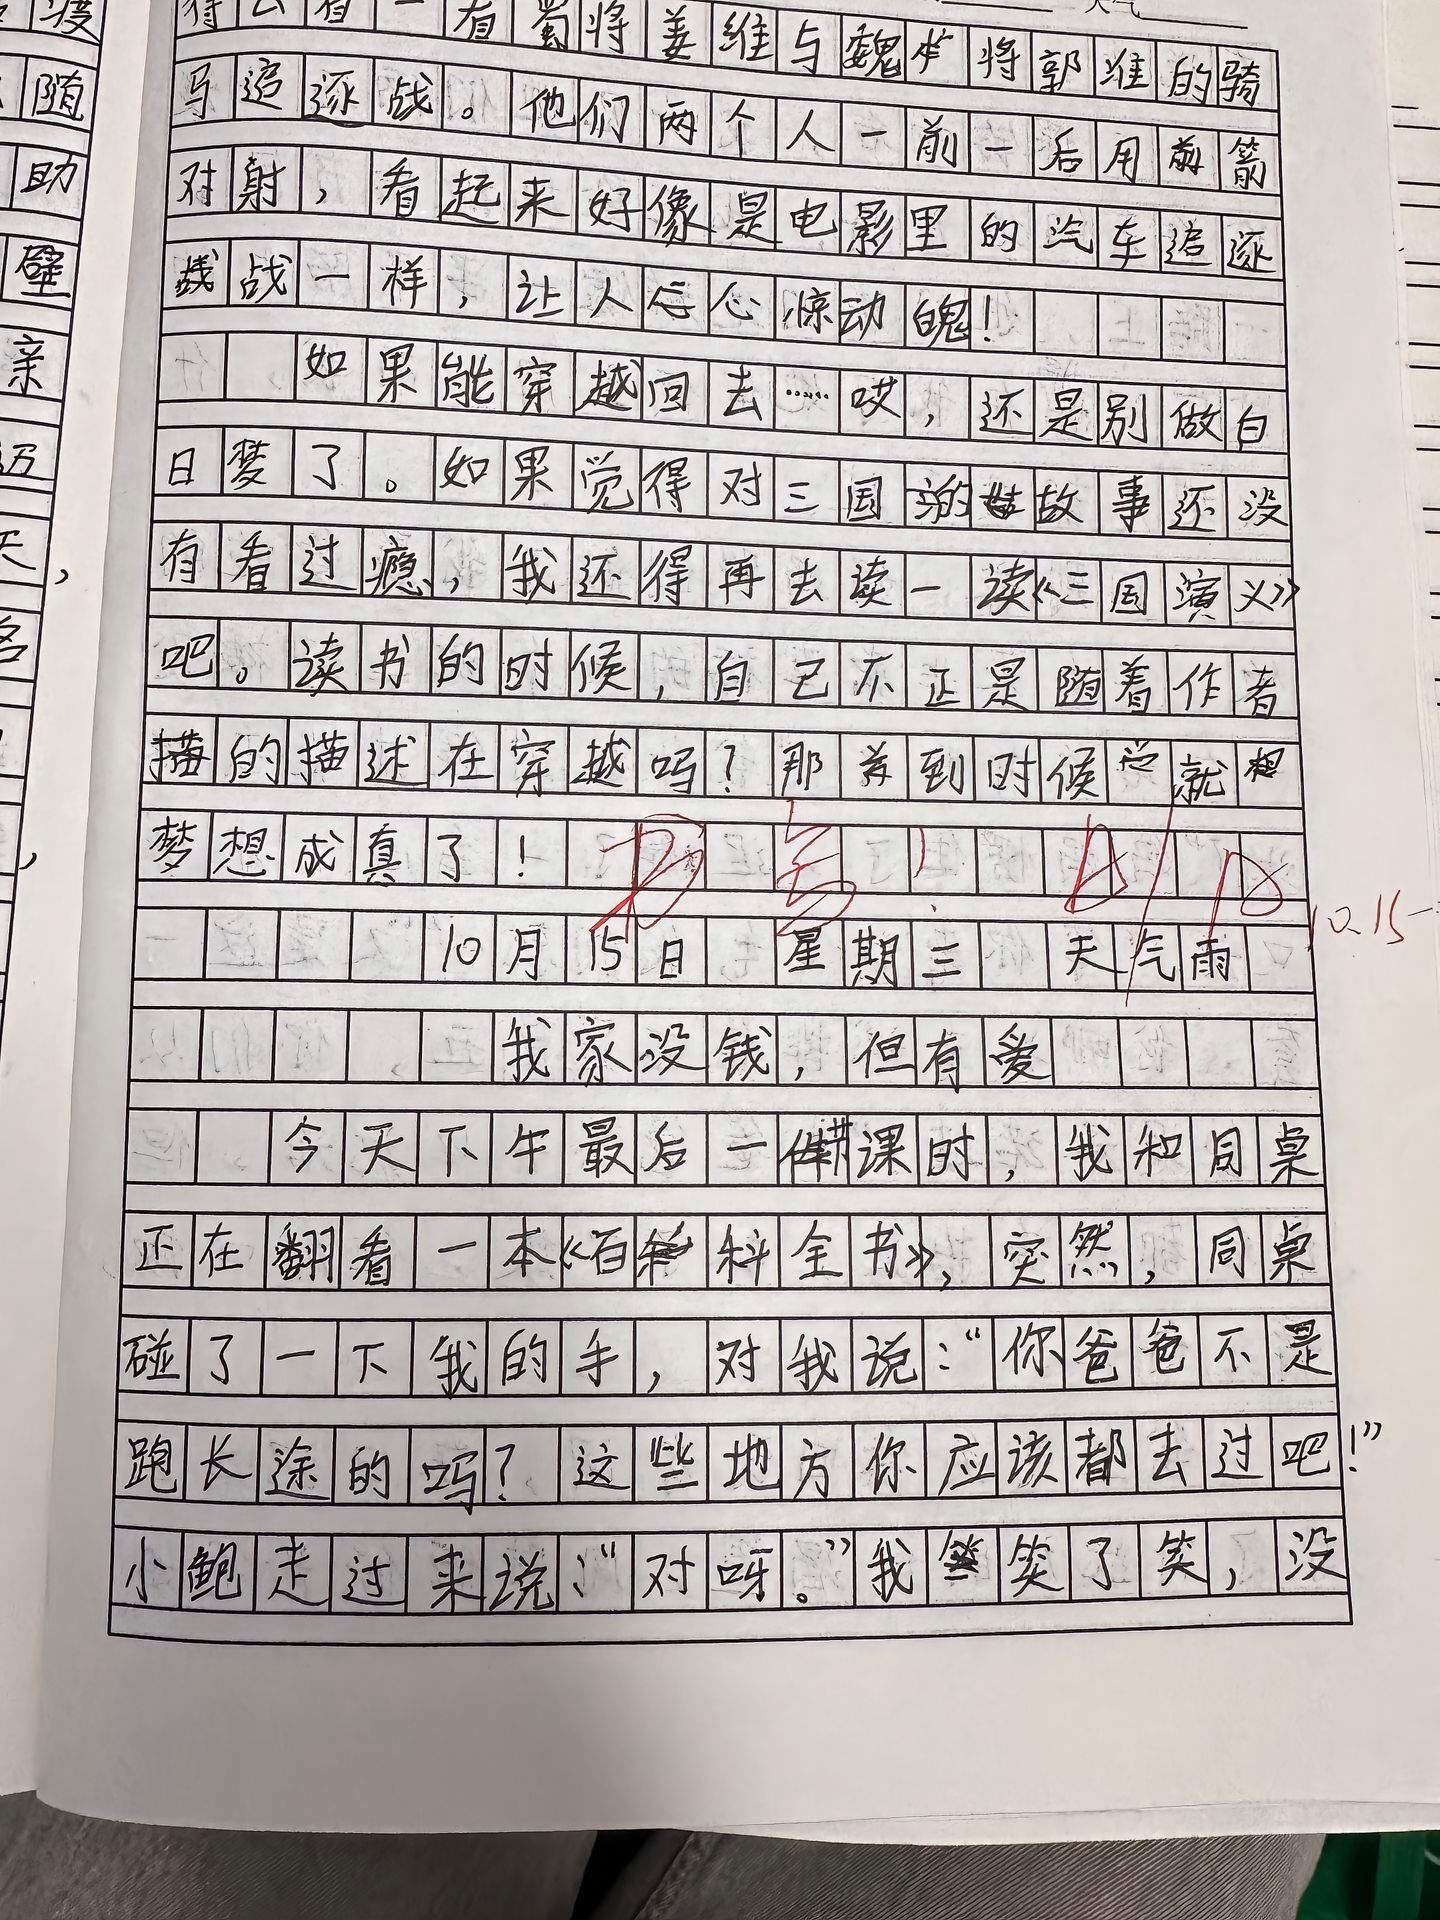 天气
渡
随
助
壁
亲
，
，
有一看蜀将姜维与魏将郭淮的骑
马追逐战。他们两个人一前一后用箭
对射，看起来好像是电影里的汽车追逐
战一样，让人心惊动魄！
如果能穿越回去……哎，还是别做白
日梦了。如果觉得对三国的故事还没
有看过瘾，我还得再去读一读《三国演义》
吧。读书的时候，自己不正是随着作者
的描述在穿越吗？那到时候就
梦想成真了！
10月15日 星期三 天气雨
10.15
我家没钱，但有爱
今天下午最后一节课时，我和同桌
正在翻看一本《百科全书》，突然，同桌
碰了一下我的手，对我说：“你爸爸不是
跑长途的吗？这些地方你应该都去过吧！”
小鲍走过来说：“对呀。”我笑了笑，没